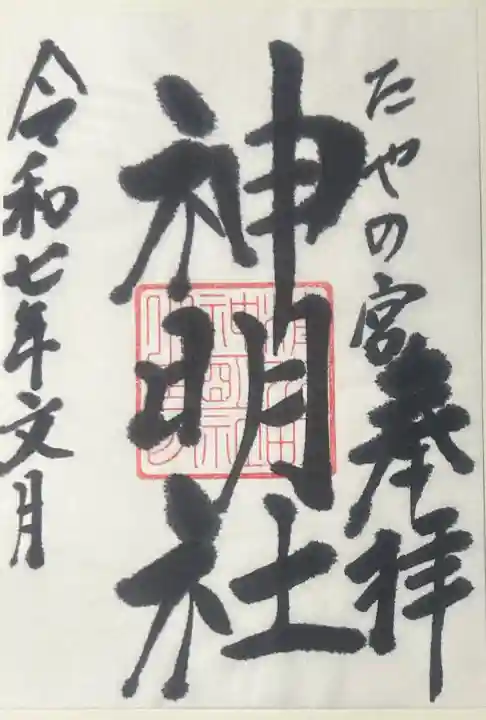 たやの宮
奉拝
神明社
令和七年文月